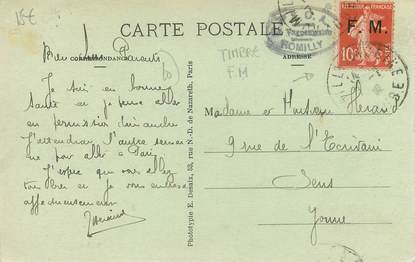 15€
CARTE POSTALE
CORRESPONDANCE
ADRESSE
TIMBRE
F M
ROMILLY
F. M.
10
Parents
Je suis en bonne
santé et je pense aller
en permission dimanche
J'attendrai l'autre semai
ne pour aller à Paris
J'espère que vous allez
tous bien et je vous embrasse
affectueusement
Madame et Monsieur Herard
9 rue de l'Ecrivain
Sens
Yonne
Phototypie E. Desaix, 53, rue N.-D. de Nazareth, Paris